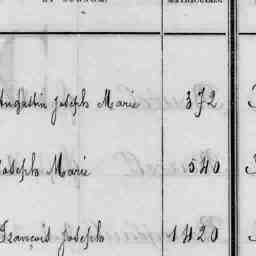 Augustin Joseph Marie 372
Joseph Marie 540
François Joseph 1420